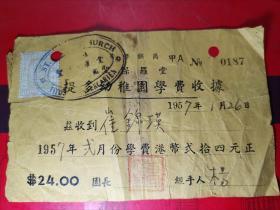 CHURCH
甲A № 0187
保羅堂
幼稚園學費收據
1957年1月26日
茲收到 崔錦瑛
1957年弍月份學費港幣弍拾四元正
$24.00 園長 經手人 楊